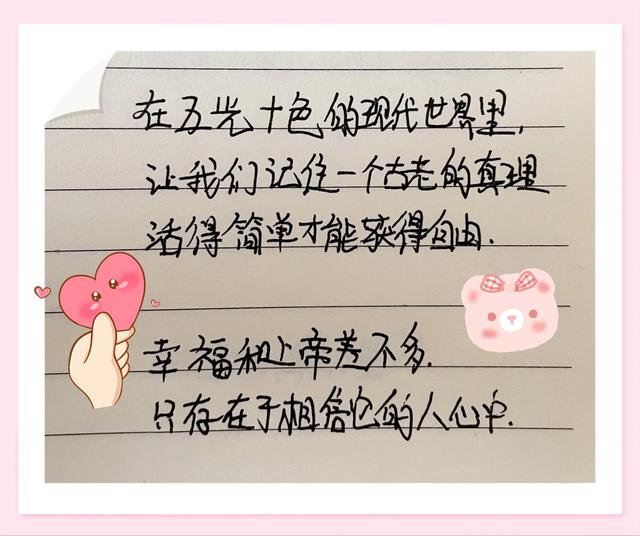 在五光十色的现代世界里,
让我们记住一个古老的真理
活得简单才能获得自由.
幸福和上帝差不多.
只存在于相信它的人心中.